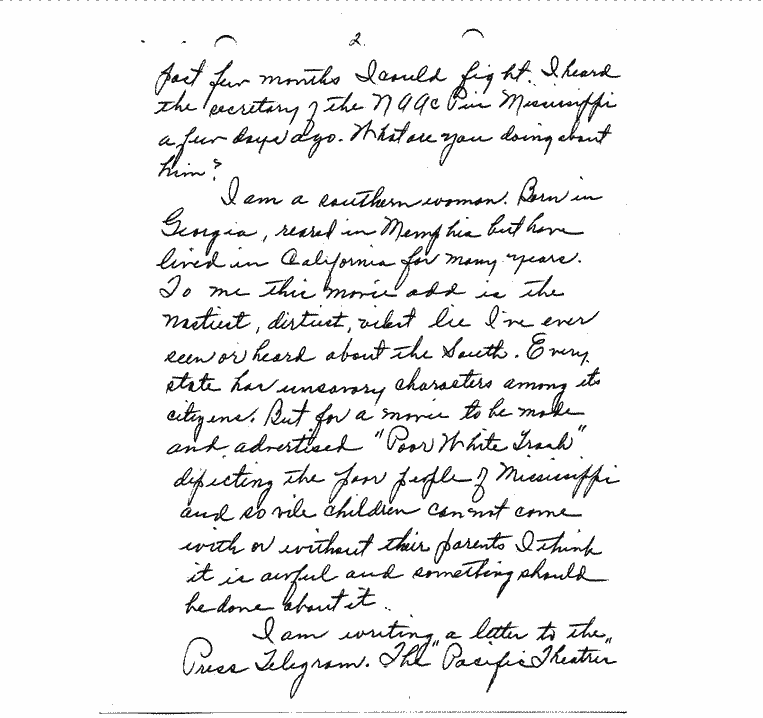 2.
past few months I could fight. I heard
the secretary of the NAACP in Mississippi
a few days ago. What are you doing about
him?
I am a southern woman. Born in
Georgia, reared in Memphis but have
lived in California for many years.
To me this movie add is the
nastiest, dirtiest, vilest lie I've ever
seen or heard about the South. Every
state has unsavory characters among its
citizens. But for a movie to be made
and advertised "Poor White Trash"
depicting the poor people of Mississippi
and so vile children can not come
with or without their parents I think
it is awful and something should
be done about it.
I am writing a letter to the
Press Telegram. The "Pacific Theatres"